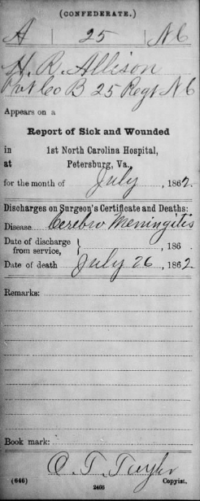 (CONFEDERATE.)
A 25 N C
H. R. Allison
Pvt Co B 25 Regt N C
Appears on a
Report of Sick and Wounded
in 1st North Carolina Hospital,
at Petersburg, Va.,
for the month of July, 1862.
Discharges on Surgeon's Certificate and Deaths:
Disease Cerebro Meningitis
Date of discharge from service, } , 186 .
Date of death July 26, 1862.
Remarks:
Book mark:
O. T. Taylor
(646) Copyist.